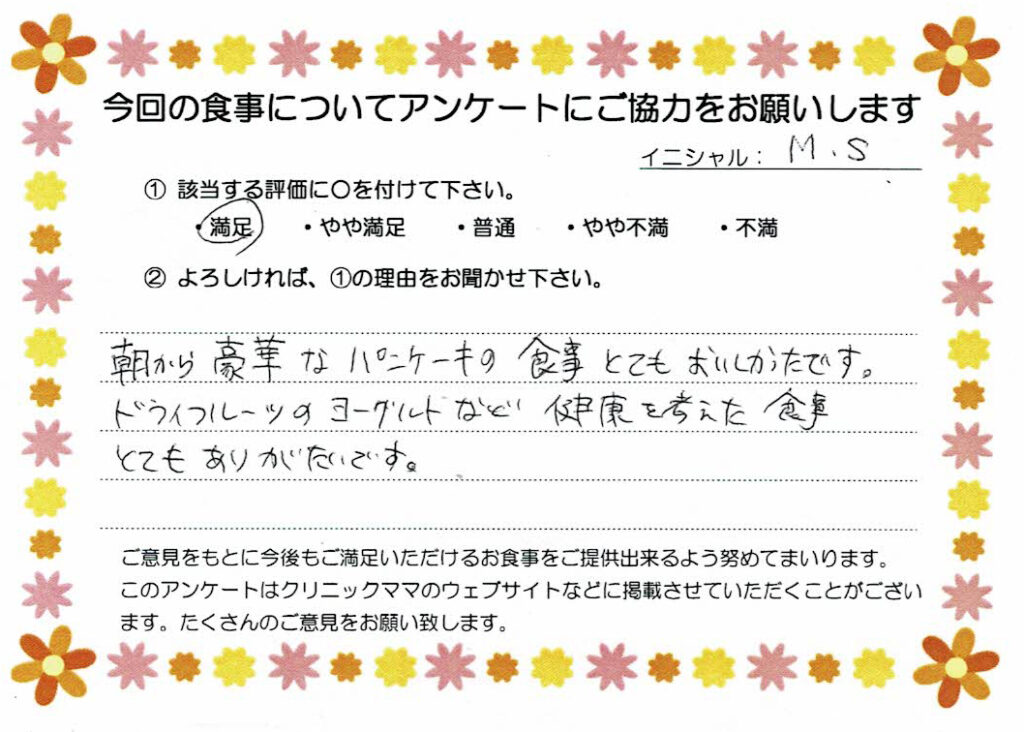 今回の食事についてアンケートにご協力をお願いします
イニシャル： M.S
① 該当する評価に〇を付けて下さい。
・満足 ・やや満足 ・普通 ・やや不満 ・不満
② よろしければ、①の理由をお聞かせ下さい。
朝から豪華なパンケーキの食事とてもおいしかたです。
ドライフルーツのヨーグルトなど健康を考えた食事
とてもありがたいです。
ご意見をもとに今後もご満足いただけるお食事をご提供出来るよう努めてまいります。
このアンケートはクリニックママのウェブサイトなどに掲載させていただくことがござい
ます。たくさんのご意見をお願い致します。